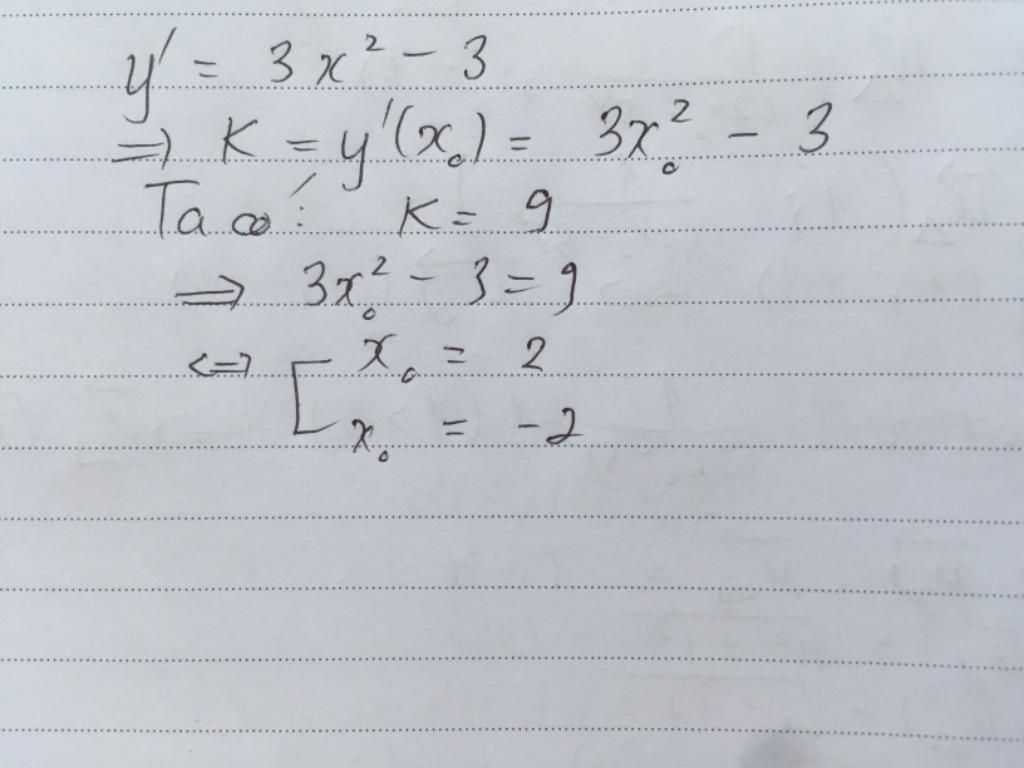 y' = 3x² - 3
⇒ K = y'(x₀) = 3x₀² - 3
Ta có: K = 9
⇒ 3x₀² - 3 = 9
⇔ [ x₀ = 2
x₀ = -2